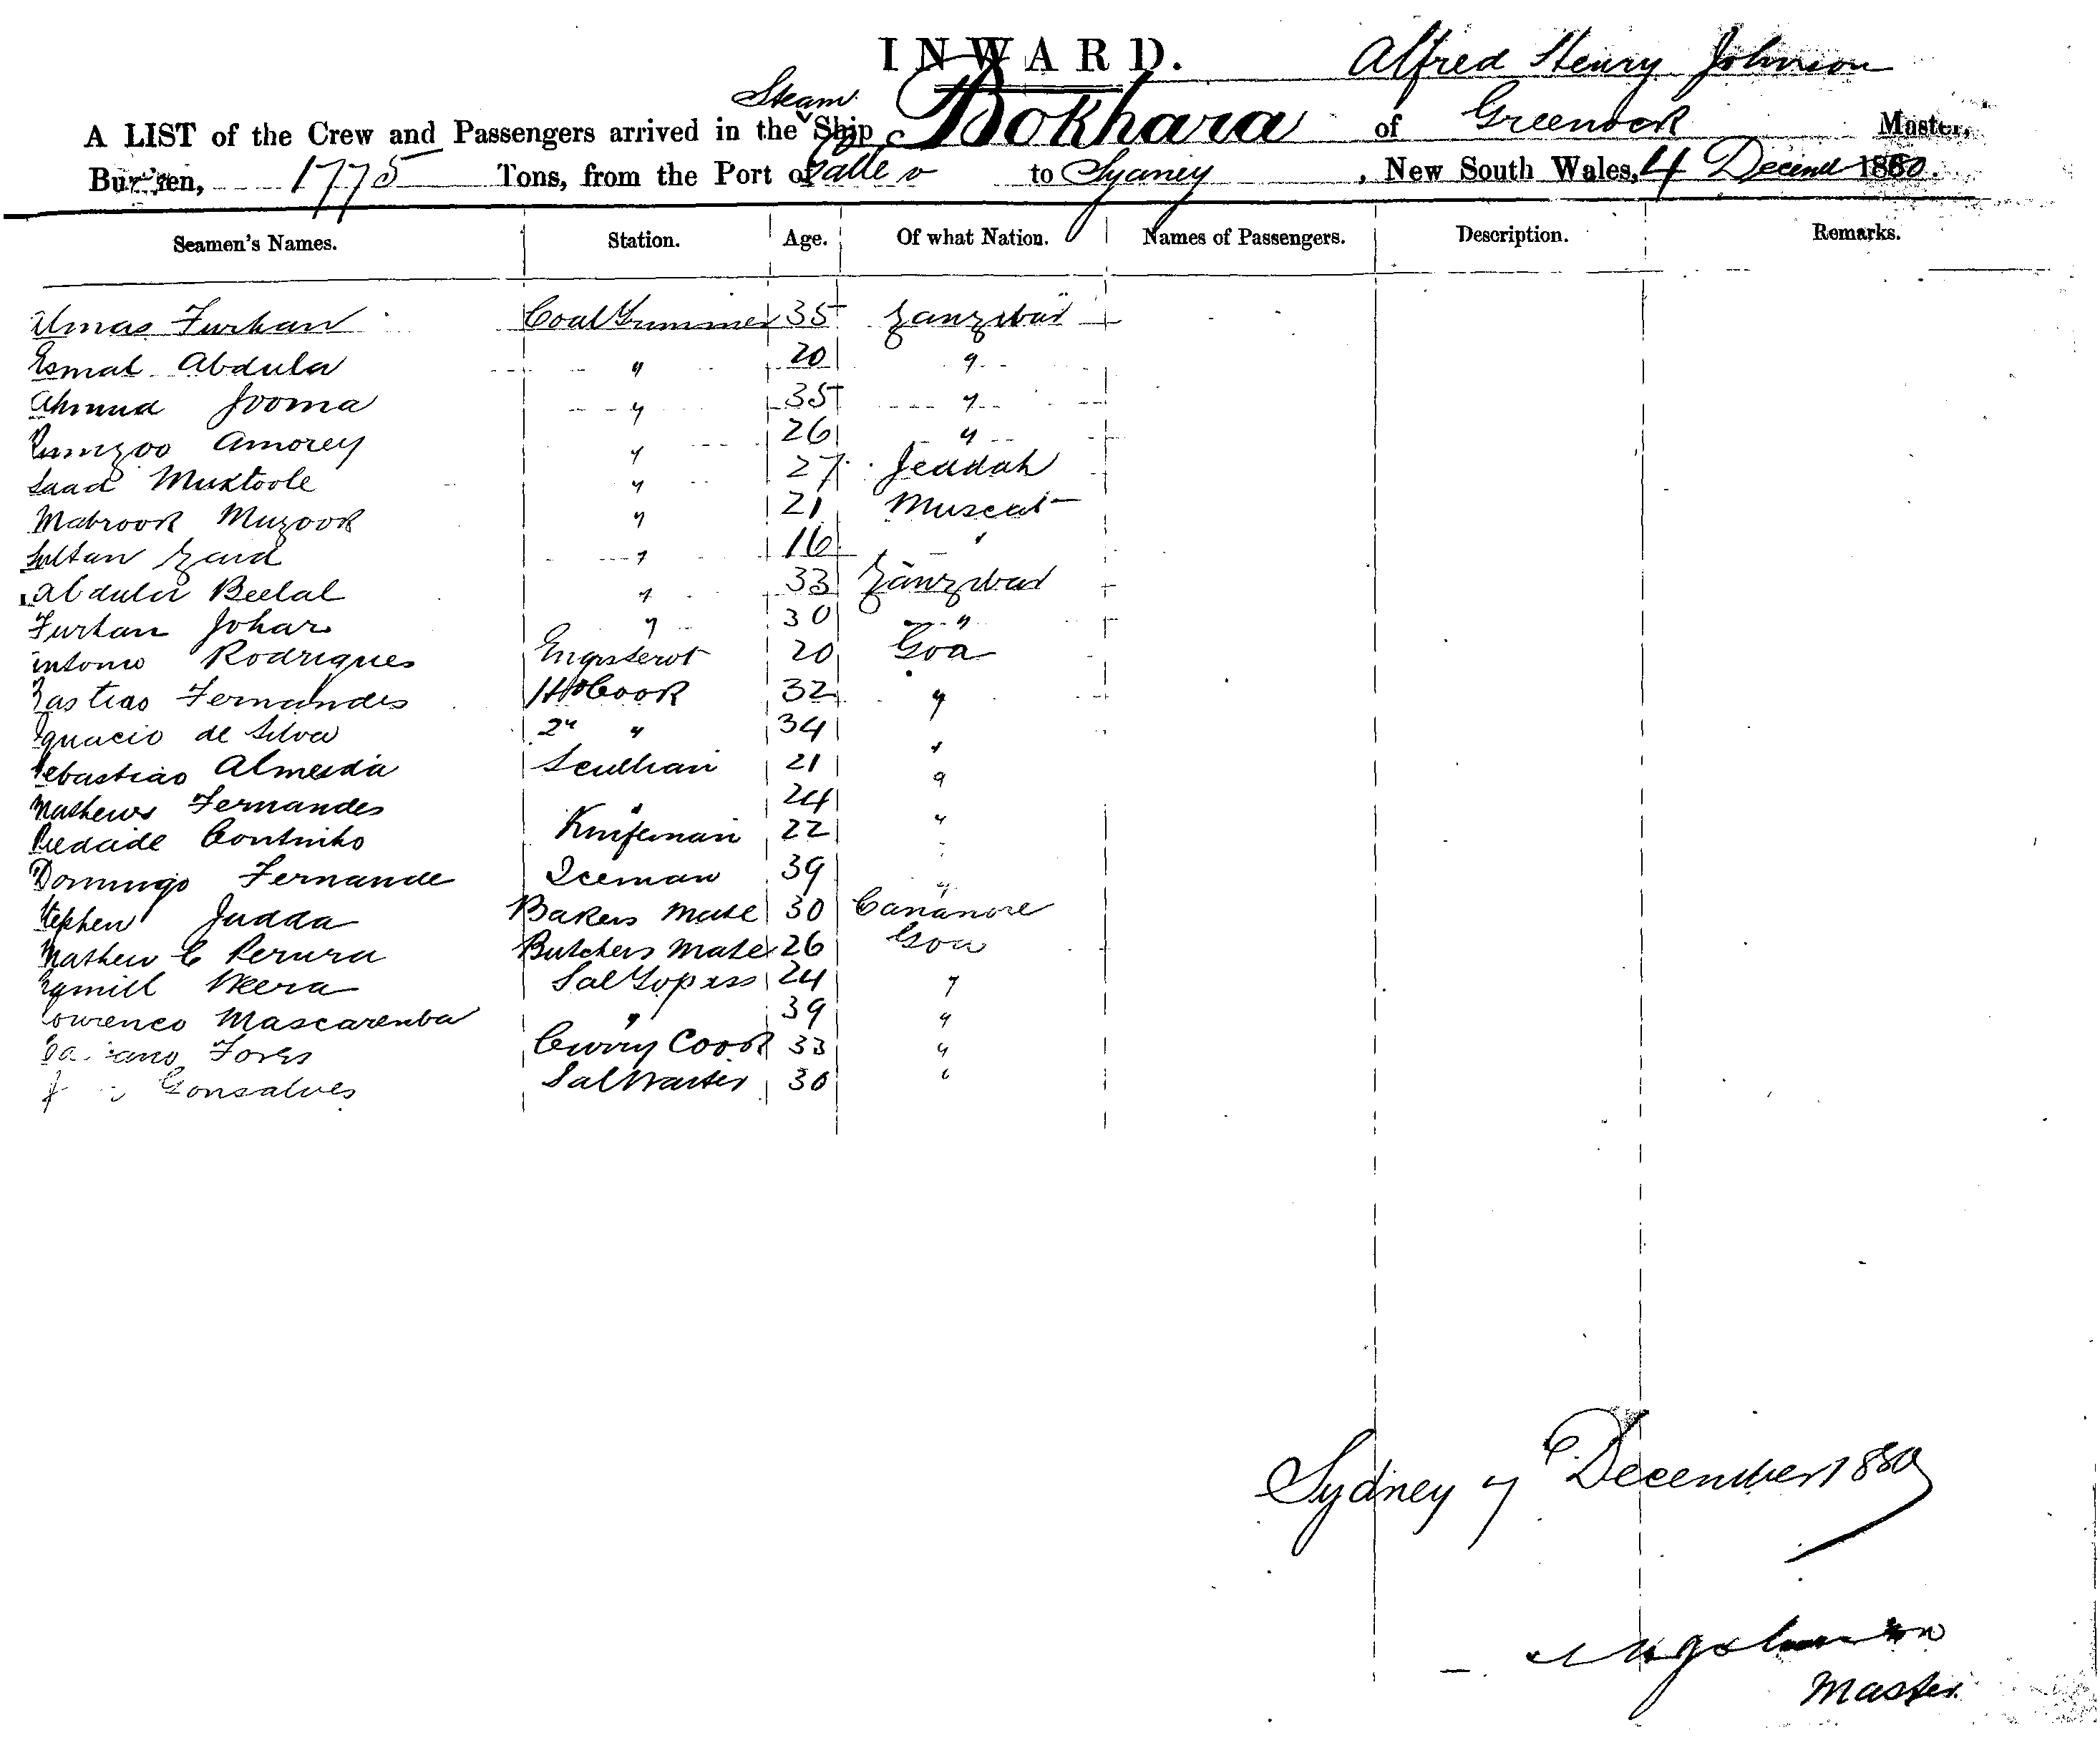 INWARD. Alfred Henry Johnson
Steam
A LIST of the Crew and Passengers arrived in the Ship Bokhara of Greenock Master,
Burthen, 1775 Tons, from the Port of Galle to Sydney, New South Wales, 4 Decem 1880.
Seamen's Names. Station. Age. Of what Nation. Names of Passengers. Description. Remarks.
Almas Furhan Coal Trimmer 35 Zanzibar
Esmal Abdula " 20 "
Ahmud Jooma " 35 "
Rumzoo Amorey " 26 "
Saad Muktoole " 27 Jeddah
Mabrook Muzook " 21 Muscat
Sultan Zaid " 16 "
Abdula Beelal " 33 Zanzibar
Furhan Johar " 30 "
Antonio Rodrigues 20 Goa
Bastiao Fernandes Cook 32 "
Ignacio de Silva 2nd " 34 "
Sebastiao Almeida Scullian 21 "
Mathews Fernandes " 24 "
Piedade Coutinho Knifeman 22 "
Domingo Fernande Iceman 39 "
Stephen Judda Bakers Mate 30 Cananore
Mathew C Perura Butchers Mate 26 Goa
Veera 24 "
Lourenco Mascarenha " 39 "
Curry Cook 33 "
Gonsalves Sal Waiter 30 "
Sydney 7 December 1880
Master